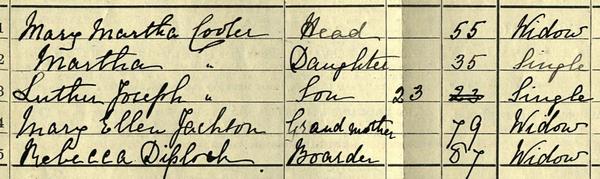 1 Mary Martha Cooler Head 55 Widow
2 Martha " Daughter 35 Single
3 Luther Joseph " Son 23 23 Single
4 Mary Ellen Jackton Grandmother 79 Widow
5 Rebecca Diplock Boarder 87 Widow